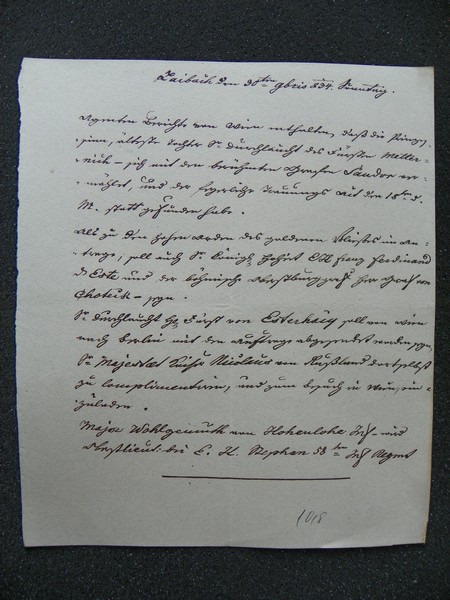 Laibach den 30ten 9bris 834. Sonntag.
Agenten Berichte von Wien enthalten, daß die Prinzeſ-
sinn, älteste Tochter Sr Durchlaucht des Fürsten Metter-
nich – sich mit dem berühmten Grafen Sandor ver-
mählet, und der feyerliche Trauungs Act den 18ten d.
M. statt gefunden habe.
Als zu dem hohen Orden des goldenen Vließes in An-
trage, soll auch Sr Königl. Hoheit Franz Ferdinand
D Este und der böhmische Oberstburggraf Herr Graf von
Chotek – seyn.
Se Durchlaucht Hr Fürst von Esterházy soll von Wien
nach Berlin mit dem Auftrage abgesendet worden seyn,
Se Majestaet Kaiser Nicolaus von Rußland dortselbst
zu complimentiren, und zum Besuch in Wien, ein-
zuladen.
Major Wohlgemuth von Hohenlohe Inf – wird
Obristlieut: bei E. H. Stephan 58ten Inf Regmt
1018